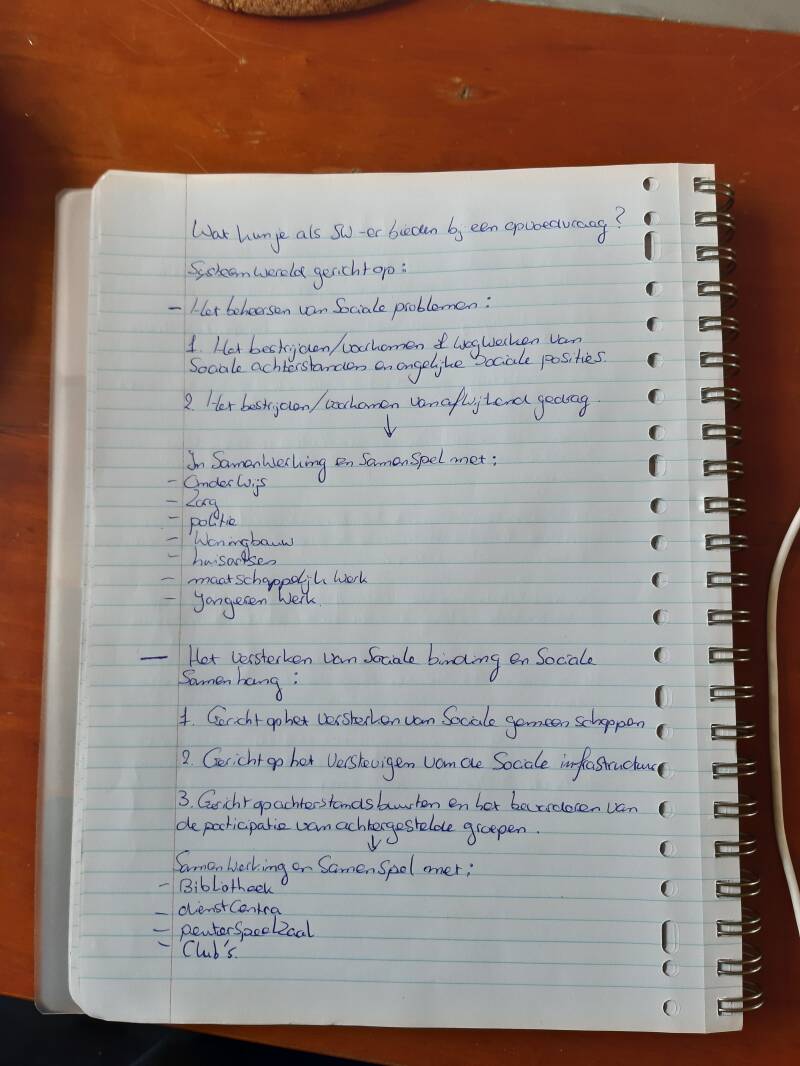 Wat kun je als SW-er bieden bij een opvoedvraag?
Systeemwereld gericht op:
- Het beheersen van Sociale problemen:
1. Het bestrijden/voorkomen & wegwerken van
Sociale achterstanden en ongelijke Sociale posities.
2. Het bestrijden/voorkomen van afwijkend gedrag.
↓
In Samenwerking en Samenspel met:
- Onderwijs
- Zorg
- politie
- Woningbouw
- huisartsen
- maatschappelijk werk
- Jongeren werk.
- Het versterken van Sociale binding en Sociale
Samenhang:
1. Gericht op het versterken van Sociale gemeenschappen
2. Gericht op het verstevigen van de Sociale infrastructuur
3. Gericht op achterstandsbuurten en het bevorderen van
de participatie van achtergestelde groepen.
↓
Samenwerking en Samenspel met:
- Bibliotheek
- dienstcentra
- peuterspeelzaal
- Club's.